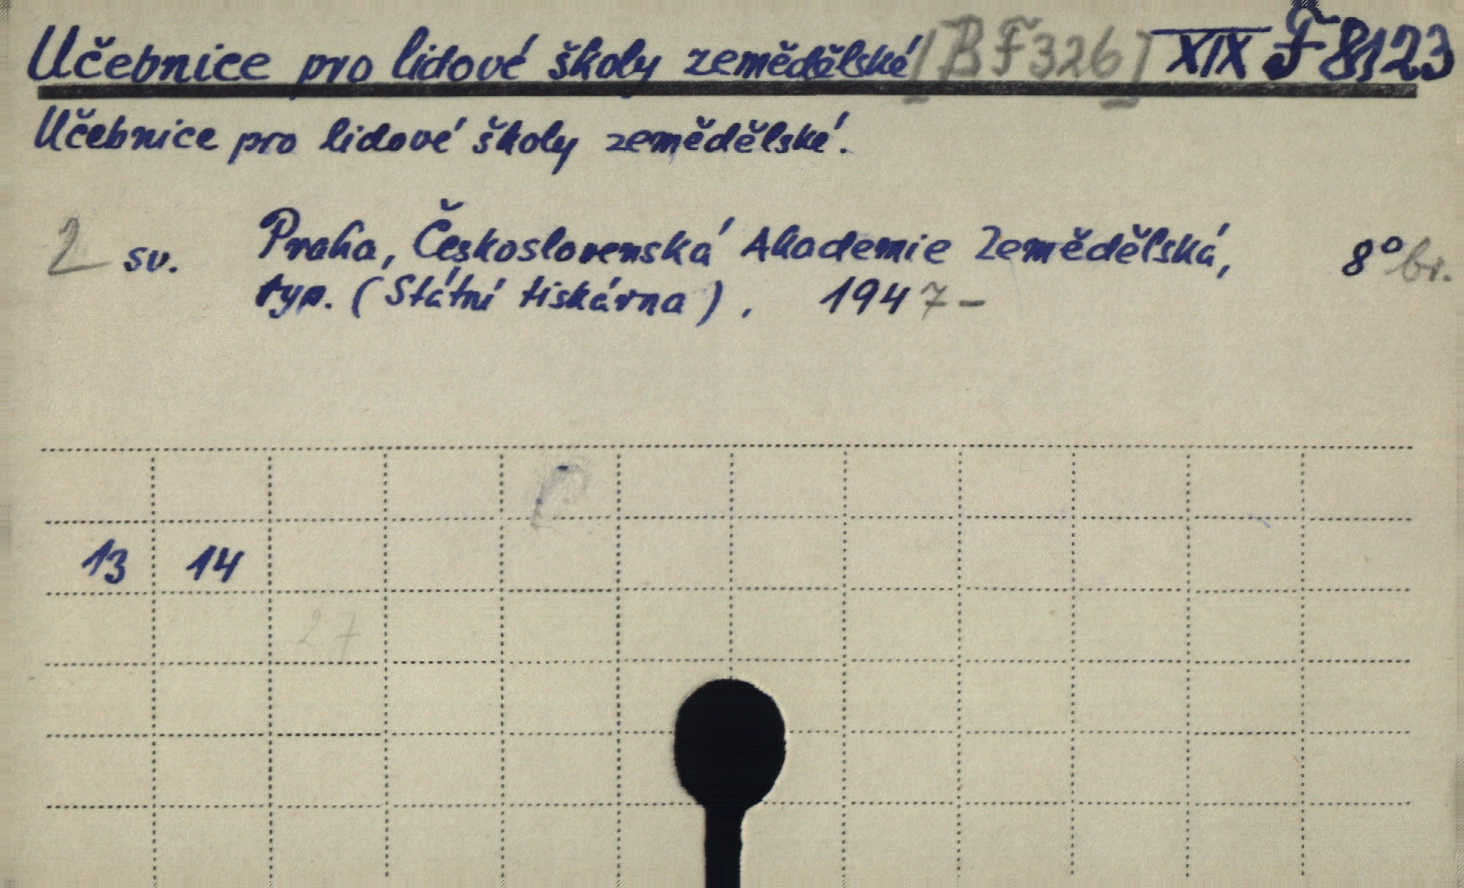 Učebnice pro lidové školy zemědělské [BF326] XIX F 8123
Učebnice pro lidové školy zemědělské.
2 sv. Praha, Československá Akademie Zemědělská, 8° br.
typ. (Státní tiskárna), 1947-
13 14
27